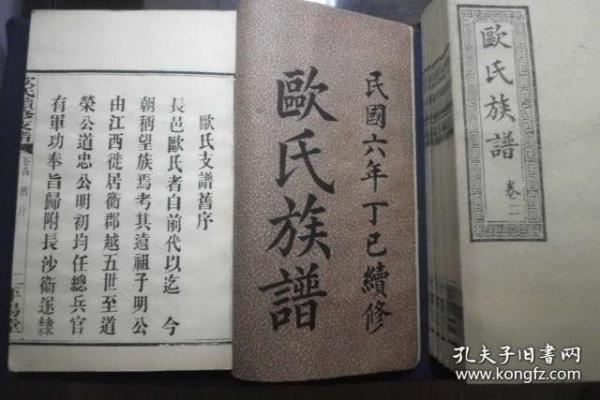 歐氏支譜舊序
長邑歐氏者自前代以迄今
朝稱望族焉考其遠祖子明公
由江西徙居衡郡越五世至道
榮公道忠公明初均任總兵官
有軍功奉旨歸附長沙衛遂隸
民國六年丁巳續修
歐氏族譜
歐氏族譜
卷二
孔夫子旧书网
www.kongfz.com